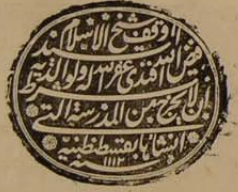 مما وقفه شيخ الاسلام السيد
فيض الله افندي غفر الله له ولوالديه بشرط
ان لا يخرج من المدرسة التي
انشأها بقسطنطينية
سنة ١١١٢